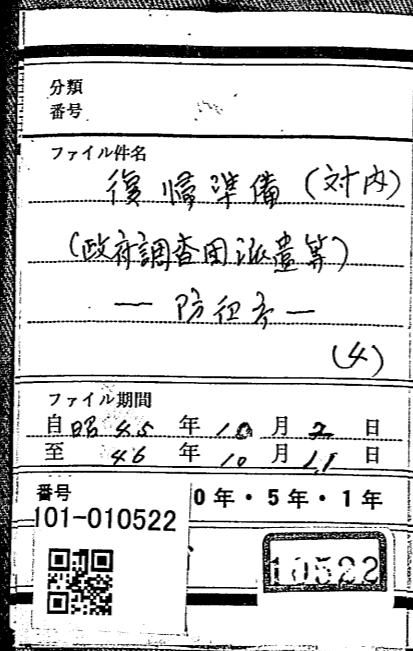 分類
番号
ファイル件名
復帰準備(対内)
(政府調査団派遣等)
— 防衛庁 —
(4)
ファイル期間
自 昭 45 年 10 月 2 日
至 46 年 10 月 11 日
番号
101-010522
0年・5年・1年
10522